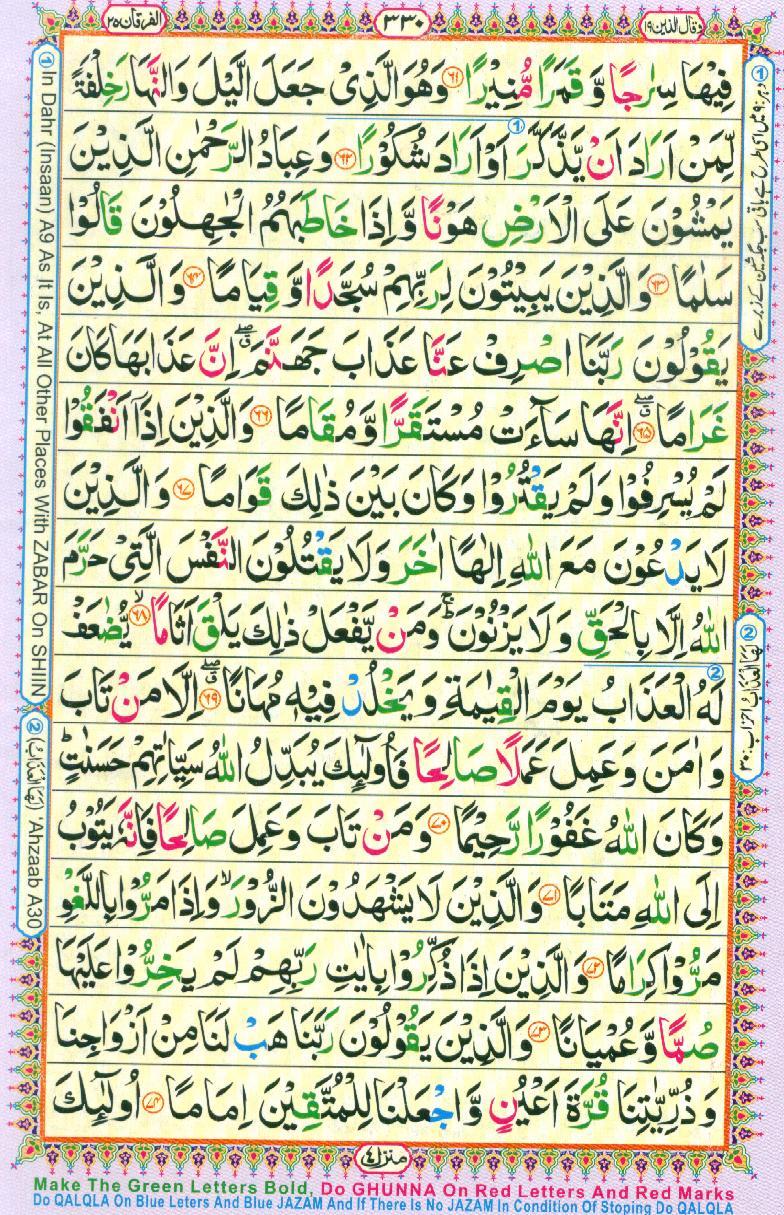 وقال الذین ۱۹
۳۳۰
الفرقان ۲۵
فِیْهَا سِرٰجًا وَّ قَمَرًا مُّنِیْرًا ﴿۶۱﴾ وَهُوَ الَّذِیْ جَعَلَ الَّیْلَ وَالنَّهَارَ خِلْفَةً
لِّمَنْ اَرَادَ اَنْ یَّذَّكَّرَ اَوْ اَرَادَ شُكُوْرًا ﴿۶۲﴾ وَعِبَادُ الرَّحْمٰنِ الَّذِیْنَ
یَمْشُوْنَ عَلَی الْاَرْضِ هَوْنًا وَّ اِذَا خَاطَبَهُمُ الْجٰهِلُوْنَ قَالُوْا
سَلٰمًا ﴿۶۳﴾ وَالَّذِیْنَ یَبِیْتُوْنَ لِرَبِّهِمْ سُجَّدًا وَّ قِیَامًا ﴿۶۴﴾ وَالَّذِیْنَ
یَقُوْلُوْنَ رَبَّنَا اصْرِفْ عَنَّا عَذَابَ جَهَنَّمَ اِنَّ عَذَابَهَا كَانَ
غَرَامًا ﴿۶۵﴾ اِنَّهَا سَآءَتْ مُسْتَقَرًّا وَّ مُقَامًا ﴿۶۶﴾ وَالَّذِیْنَ اِذَاۤ اَنْفَقُوْا
لَمْ یُسْرِفُوْا وَلَمْ یَقْتُرُوْا وَكَانَ بَیْنَ ذٰلِكَ قَوَامًا ﴿۶۷﴾ وَالَّذِیْنَ
لَا یَدْعُوْنَ مَعَ اللّٰهِ اِلٰهًا اٰخَرَ وَلَا یَقْتُلُوْنَ النَّفْسَ الَّتِیْ حَرَّمَ
اللّٰهُ اِلَّا بِالْحَقِّ وَلَا یَزْنُوْنَ ۚ وَمَنْ یَّفْعَلْ ذٰلِكَ یَلْقَ اَثَامًا ﴿۶۸﴾ یُّضٰعَفْ
لَهُ الْعَذَابُ یَوْمَ الْقِیٰمَةِ وَیَخْلُدْ فِیْهٖ مُهَانًا ﴿۶۹﴾ اِلَّا مَنْ تَابَ
وَاٰمَنَ وَعَمِلَ عَمَلًا صَالِحًا فَاُولٰٓئِكَ یُبَدِّلُ اللّٰهُ سَیِّاٰتِهِمْ حَسَنٰتٍ ؕ
وَكَانَ اللّٰهُ غَفُوْرًا رَّحِیْمًا ﴿۷۰﴾ وَمَنْ تَابَ وَعَمِلَ صَالِحًا فَاِنَّهٗ یَتُوْبُ
اِلَی اللّٰهِ مَتَابًا ﴿۷۱﴾ وَالَّذِیْنَ لَا یَشْهَدُوْنَ الزُّوْرَ ۙ وَاِذَا مَرُّوْا بِاللَّغْوِ
مَرُّوْا كِرَامًا ﴿۷۲﴾ وَالَّذِیْنَ اِذَا ذُكِّرُوْا بِاٰیٰتِ رَبِّهِمْ لَمْ یَخِرُّوْا عَلَیْهَا
صُمًّا وَّ عُمْیَانًا ﴿۷۳﴾ وَالَّذِیْنَ یَقُوْلُوْنَ رَبَّنَا هَبْ لَنَا مِنْ اَزْوَاجِنَا
وَذُرِّیّٰتِنَا قُرَّةَ اَعْیُنٍ وَّاجْعَلْنَا لِلْمُتَّقِیْنَ اِمَامًا ﴿۷۴﴾ اُولٰٓئِكَ
① In Dahr (Insaan) A9 As It Is, At All Other Places With ZABAR On SHIIN
② 'Ahzaab A30
منزل ۴
Make The Green Letters Bold, Do GHUNNA On Red Letters And Red Marks
Do QALQLA On Blue Leters And Blue JAZAM And If There Is No JAZAM In Condition Of Stoping Do QALQLA